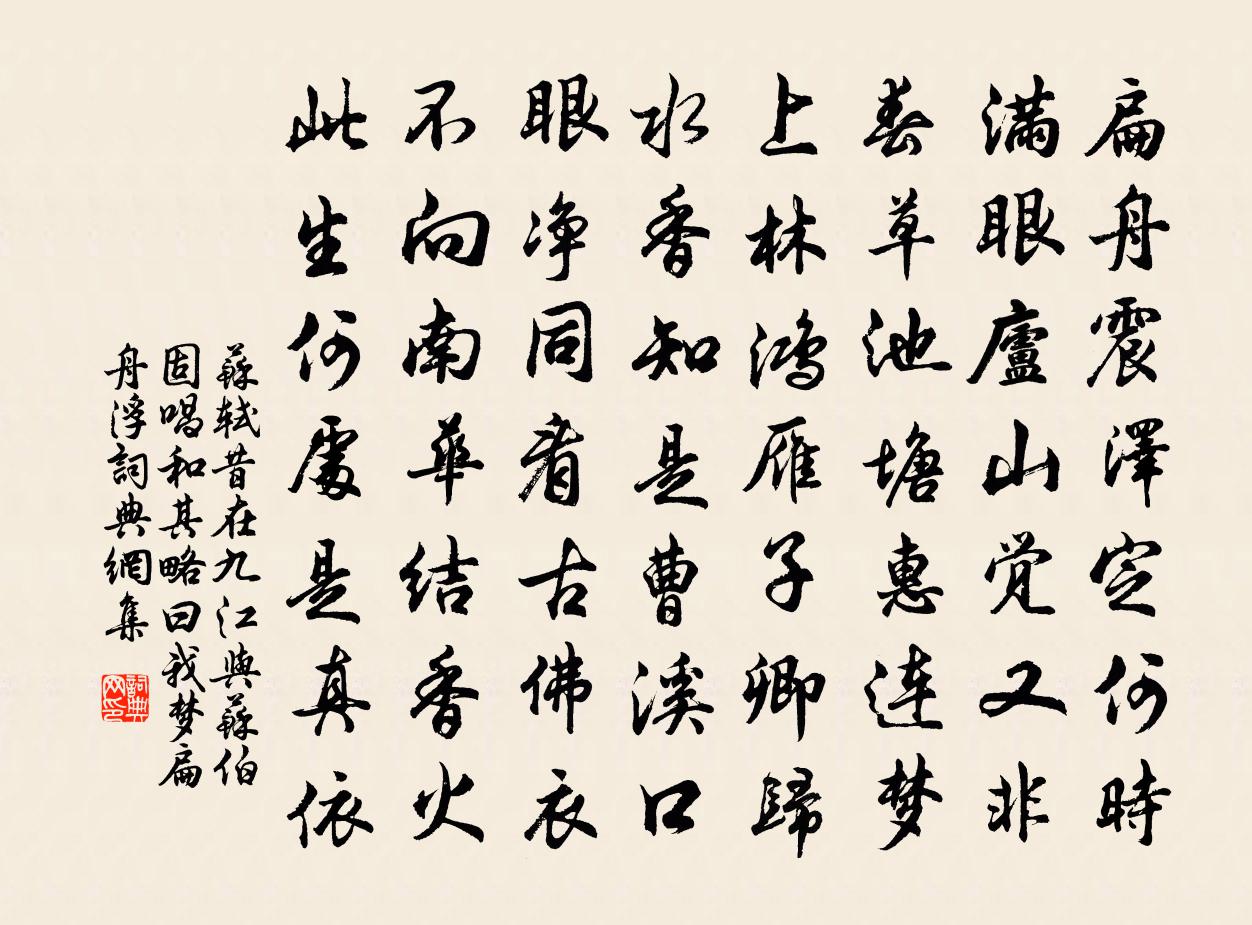 扁舟震澤定何時
满眼廬山觉又非
春草池塘惠连梦
上林鴻雁子卿歸
水香知是曹溪口
眼净同看古佛衣
不向南華结香火
此生何處是真依
蘇軾昔在九江與蘇伯
固唱和其略曰我梦扁
舟浮詞典網集
詞典网印